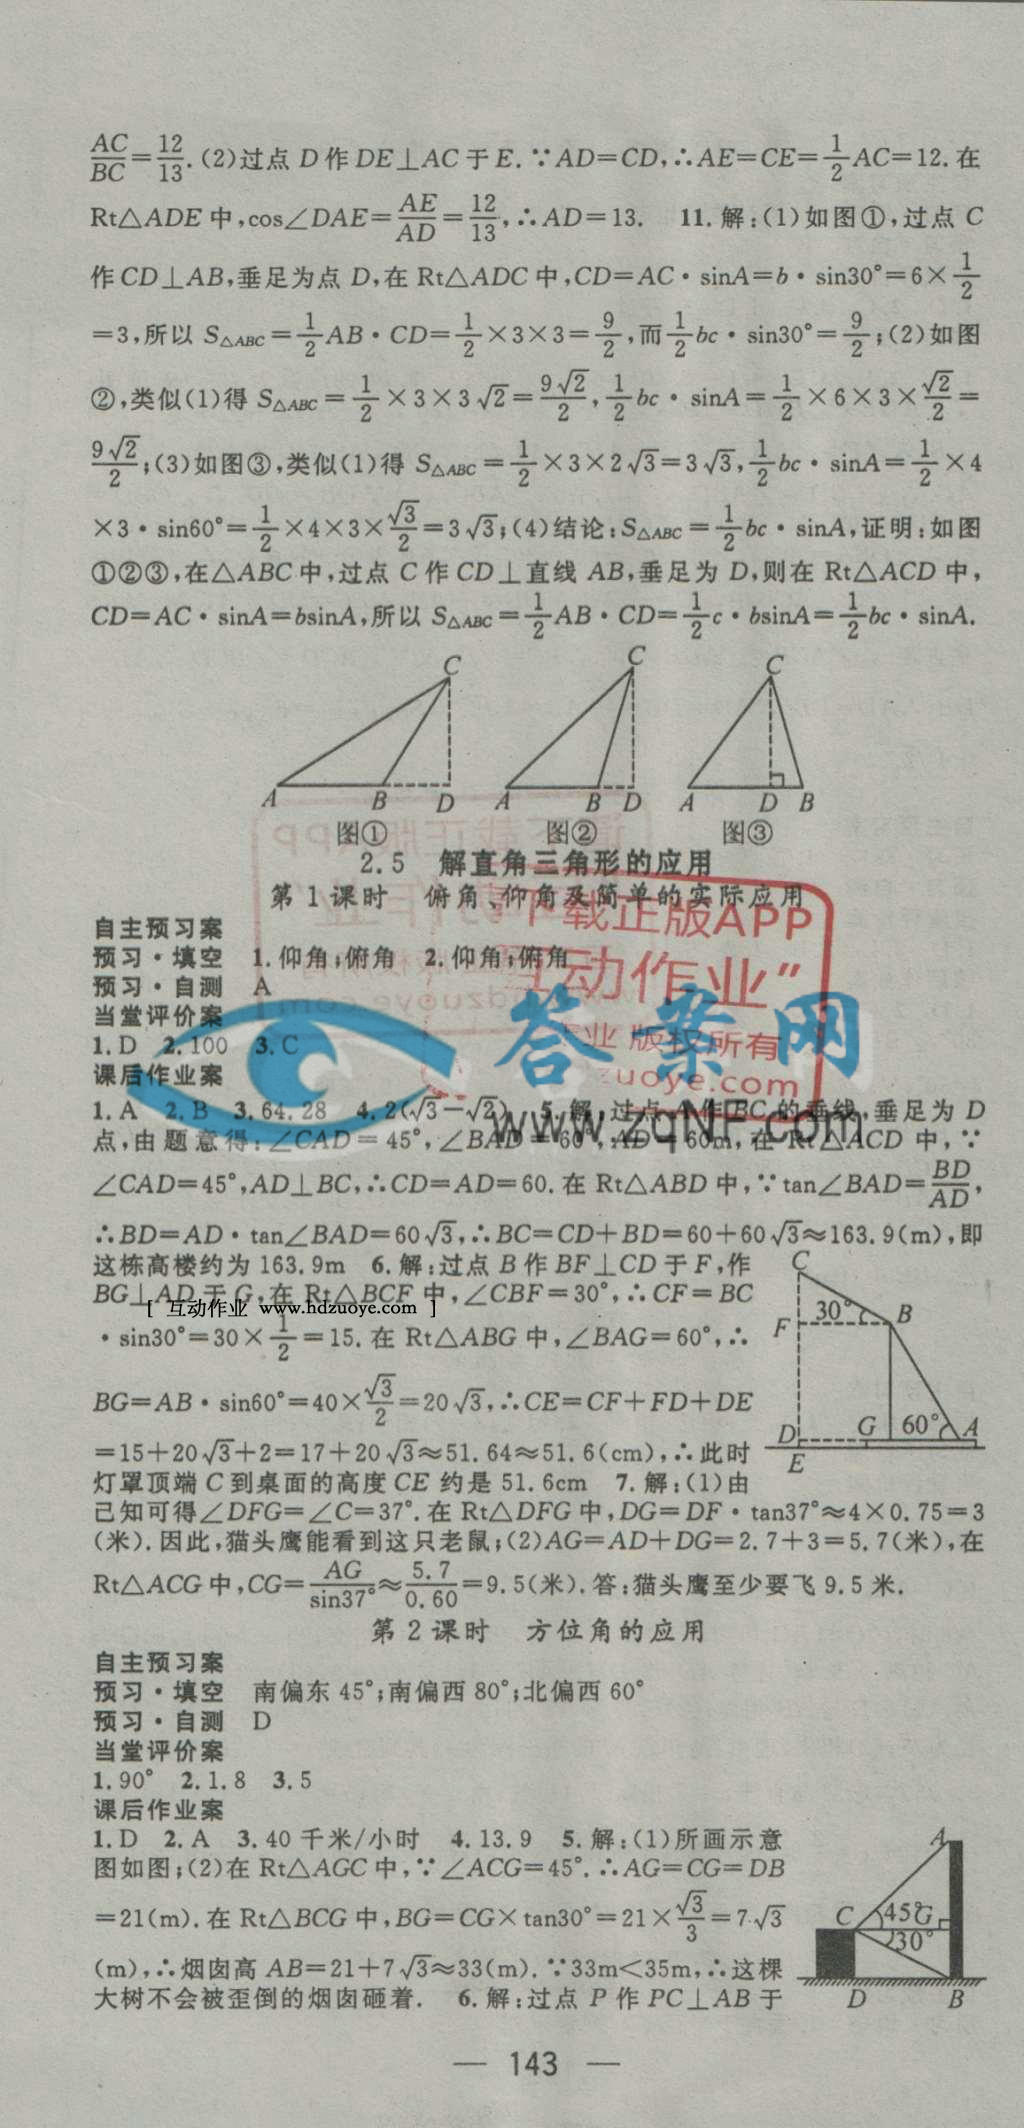 AC/BC=12/13.(2)过点 D 作 DE⊥AC 于 E.∵AD=CD,∴AE=CE=1/2AC=12.在
Rt△ADE 中,cos∠DAE=AE/AD=12/13,∴AD=13. 11.解:(1)如图①,过点 C
作 CD⊥AB,垂足为点 D,在 Rt△ADC 中,CD=AC·sinA=b·sin30°=6×1/2
=3,所以 S△ABC=1/2AB·CD=1/2×3×3=9/2,而1/2bc·sin30°=9/2;(2)如图
②,类似(1)得 S△ABC=1/2×3×3√2=9√2/2,1/2bc·sinA=1/2×6×3×√2/2=
9√2/2;(3)如图③,类似(1)得 S△ABC=1/2×3×2√3=3√3,1/2bc·sinA=1/2×4
×3·sin60°=1/2×4×3×√3/2=3√3;(4)结论:S△ABC=1/2bc·sinA,证明:如图
①②③,在△ABC 中,过点 C 作 CD⊥直线 AB,垂足为 D,则在 Rt△ACD 中,
CD=AC·sinA=bsinA,所以 S△ABC=1/2AB·CD=1/2c·bsinA=1/2bc·sinA.
C
A B D
图①
C
A B D
图②
C
A D B
图③
2.5 解直角三角形的应用
第 1 课时 俯角、仰角及简单的实际应用
自主预习案
预习·填空 1.仰角;俯角 2.仰角;俯角
预习·自测 A
当堂评价案
1.D 2.100 3.C
课后作业案
1.A 2.B 3.64.28 4.2(√3-√2) 5.解:过点 A 作 BC 的垂线,垂足为 D
点,由题意得:∠CAD=45°,∠BAD=60°,AD=60m,在 Rt△ACD 中,∵
∠CAD=45°,AD⊥BC,∴CD=AD=60.在 Rt△ABD 中,∵tan∠BAD=BD/AD,
∴BD=AD·tan∠BAD=60√3,∴BC=CD+BD=60+60√3≈163.9(m),即
这栋高楼约为 163.9m 6.解:过点 B 作 BF⊥CD 于 F,作
BG⊥AD 于 G,在 Rt△BCF 中,∠CBF=30°,∴CF=BC
·sin30°=30×1/2=15.在 Rt△ABG 中,∠BAG=60°,∴
BG=AB·sin60°=40×√3/2=20√3,∴CE=CF+FD+DE
=15+20√3+2=17+20√3≈51.64≈51.6(cm),∴此时
灯罩顶端 C 到桌面的高度 CE 约是 51.6cm 7.解:(1)由
已知可得∠DFG=∠C=37°.在 Rt△DFG 中,DG=DF·tan37°≈4×0.75=3
(米).因此,猫头鹰能看到这只老鼠;(2)AG=AD+DG=2.7+3=5.7(米),在
Rt△ACG 中,CG=AG/sin37°≈5.7/0.60=9.5(米).答:猫头鹰至少要飞 9.5 米.
C
30° B
F
D G 60° A
E
第 2 课时 方位角的应用
自主预习案
预习·填空 南偏东 45°;南偏西 80°;北偏西 60°
预习·自测 D
当堂评价案
1.90° 2.1.8 3.5
课后作业案
1.D 2.A 3.40 千米/小时 4.13.9 5.解:(1)所画示意
图如图;(2)在 Rt△AGC 中,∵∠ACG=45°.∴AG=CG=DB
=21(m).在 Rt△BCG 中,BG=CG×tan30°=21×√3/3=7√3
(m),∴烟囱高 AB=21+7√3≈33(m).∵33m<35m,∴这棵
大树不会被歪倒的烟囱砸着. 6.解:过点 P 作 PC⊥AB 于
A
C 45° G
30°
D B
— 143 —
下载正版APP
互动作业”
作业 版权所有
zuoye.com
答案网
www.zqNF.com
[ 互动作业 www.hdzuoye.com ]